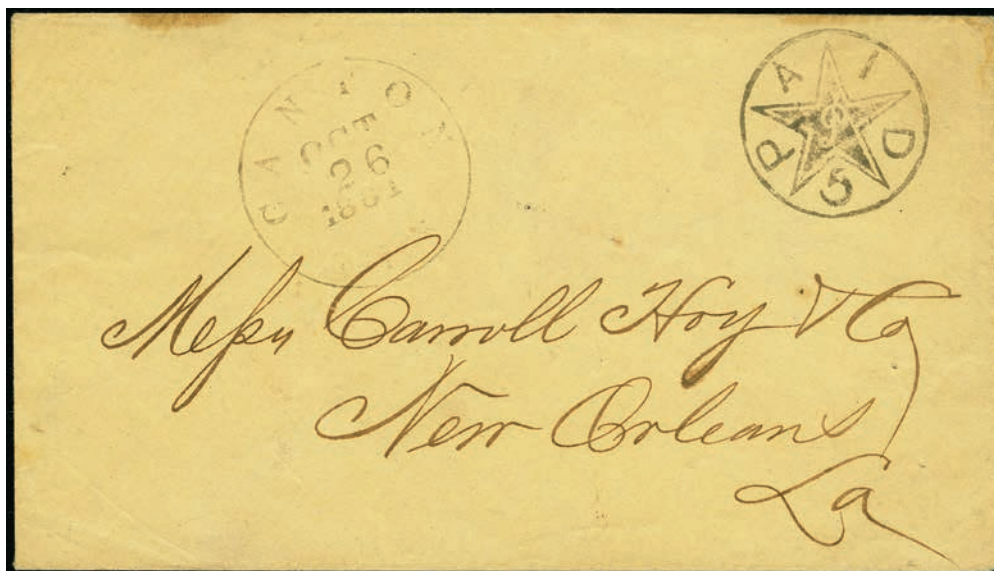 CANTON
OCT
26
1861
PAID
5
Messrs Carroll Hoy & Co
New Orleans
La